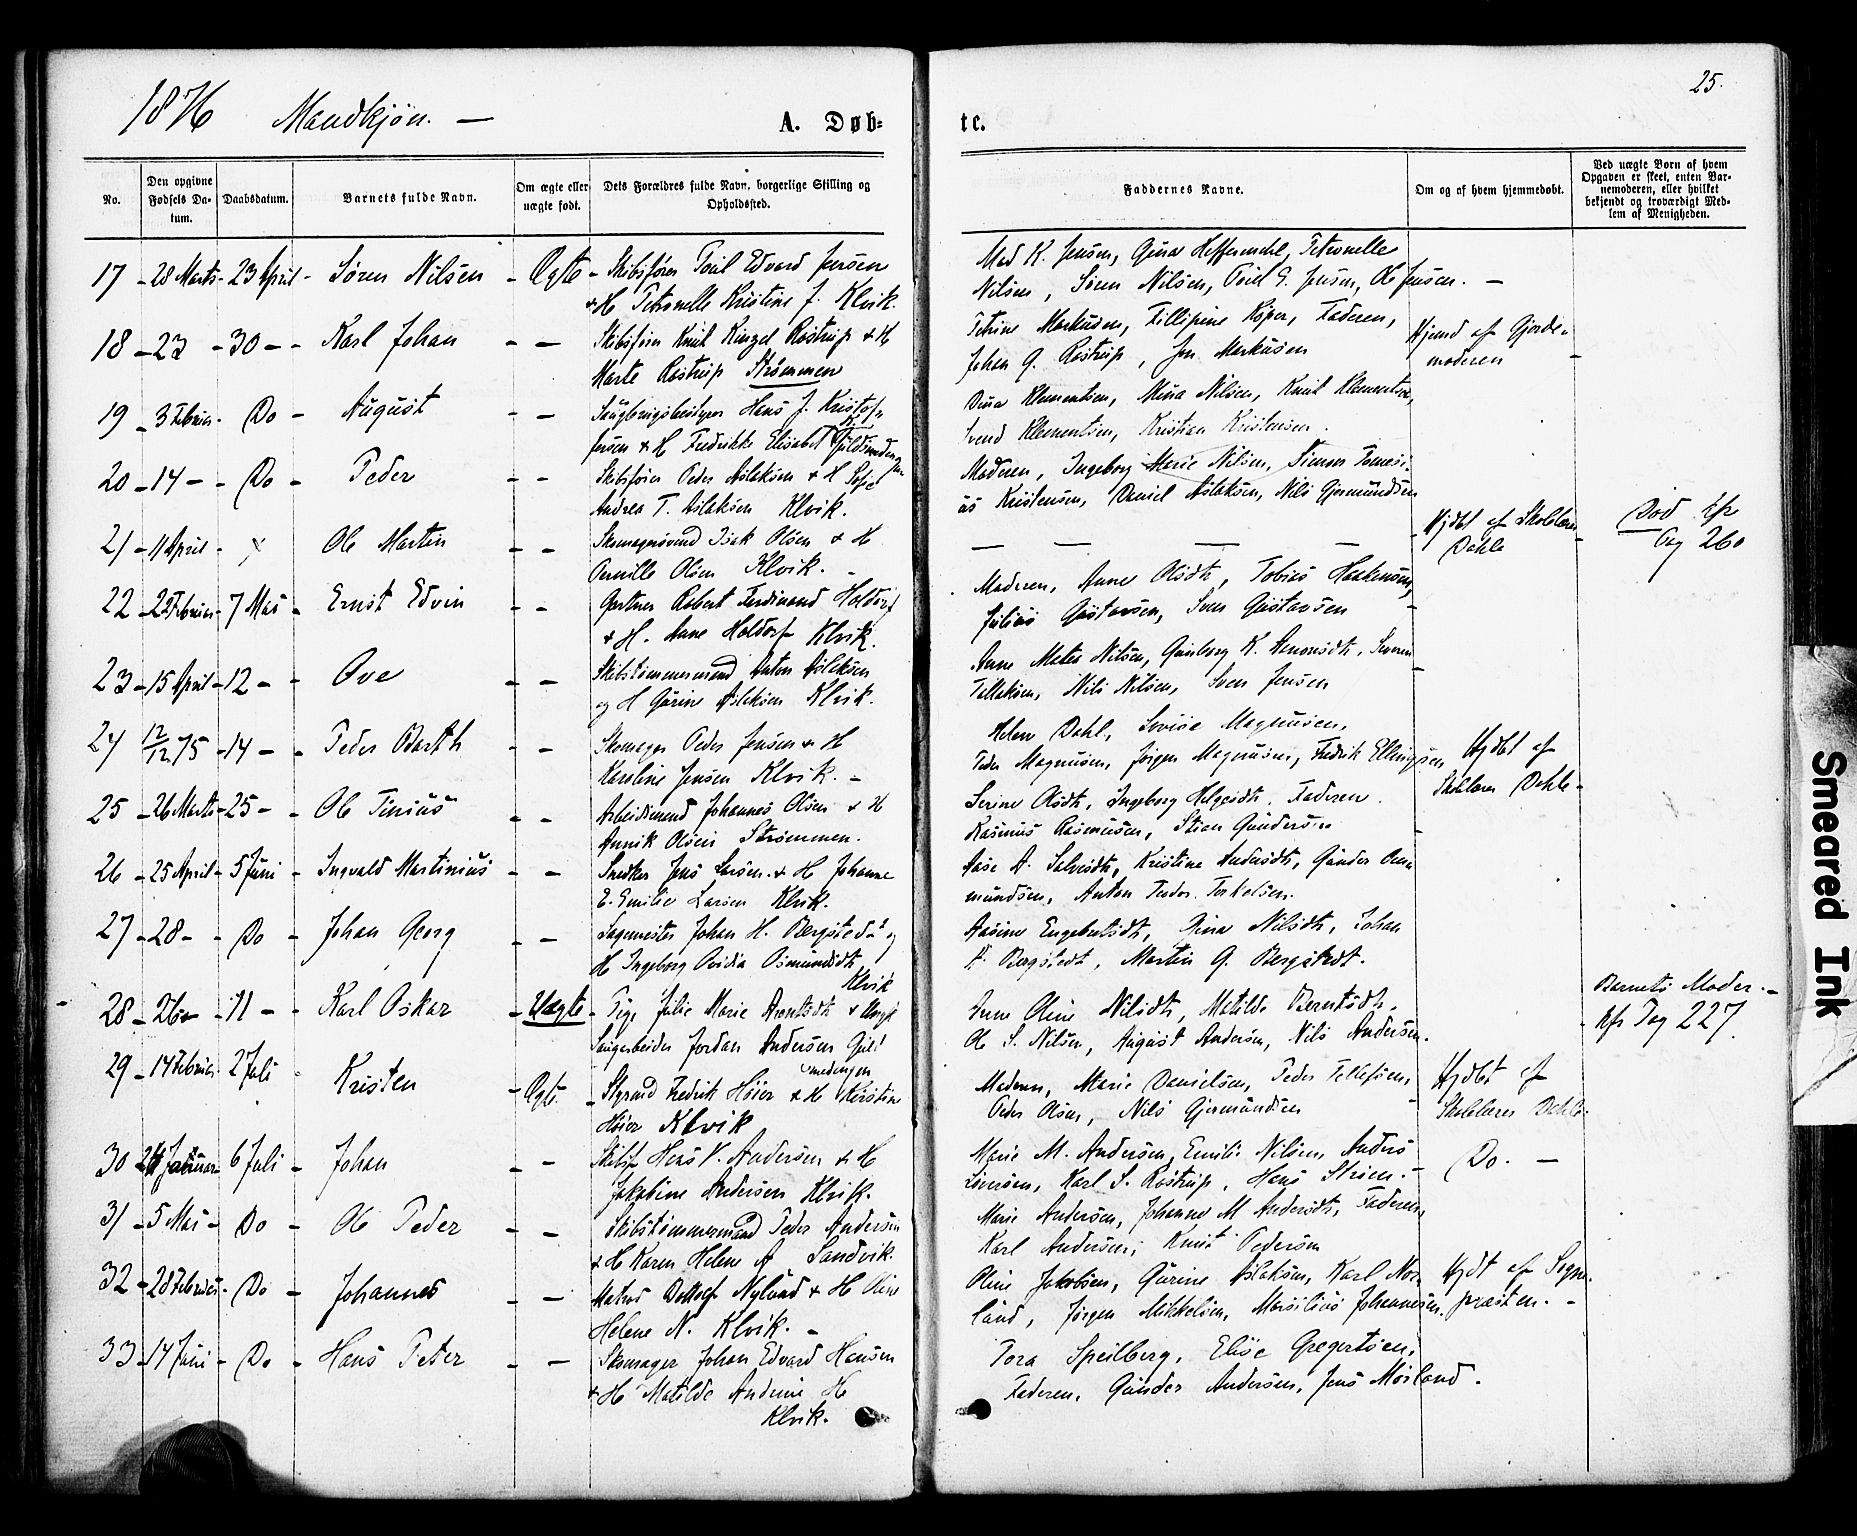 1876 Mandkjön. —
A. Døb-
te.
25.
No.
Den opgivne Fødsels Da-
tum.
Daabsdatum.
Barnets fulde Navn.
Om ægte eller
uægte født.
Dets Forældres fulde Navn, borgerlige Stilling og
Opholdssted.
Faddernes Navne.
Om og af hvem hjemmedøbt.
Ved uægte Børn af hvem
Opgaven er skeet, enten Bar-
nemoderen, eller hvilket
bekjendt og troværdigt Med-
lem af Menigheden.
17 - 28 Marts - 23 April - Sören Nilsen - Ægte - Skibsförer Edvard Jensen
& H Petronelle Kristine J. Klvik.
Mad K. Jensen, Petronelle
Nilsen, Sören Nilsen, Jensen, Ole Jensen. —
18 - 23 - 30 - - Karl Johan - — Skibsförer Knut Rostrup & H
Marte Rostrup Strömmen
Petrine Markusen, Faderen,
Johan G. Rostrup, Markusen
Hjemd af Gjorde-
moderen
19 - 3 Februar - Do - August - — Hans J. Kristof-
fersen & H Fredrikke Elisabet
Klementsen, Mina Nilsen, Knut Klementsen,
Svend Klementsen, Kristian Kristensen.
20 - 14 - - Do - Peder - — Skibsförer Peder Aslaksen & H Sofie
Andrea T. Aslaksen Klvik.
Moderen, Ingeborg Marie Nilsen,
Kristensen, Daniel Aslaksen, Nils Gjermundsen
21 - 11 April - x Ole Martin - — Skomagersvend Isak Olsen & H
Pernille Olsen Klvik. -
— — — —
Hjdbt af Skolelærer
Dahle
Död cfr
Pag 260
22 - 22 Februar - 7 Mai - Ernst Edvin - - Gartner Robert Ferdinand Holdorf
& H. Anne Holdorf Klvik.
Moderen, Anne Olsdt, Tobias Haakensen,
Julius Gustavsen, Sven Gustavsen
23 - 15 April - 12 - - Ove - — Skibstömmermand Anton Aslaksen
og H Gurine Aslaksen Klvik.
Anne Nilsen, Gunborg K.
Tellaksen, Nils Nilsen, Sven Jensen
24 12/12 75 - 14 - - Peder Barth - — Skomager Peder Jensen & H
Karoline Jensen Klvik. -
Helene Dahl, Lovise Magnusen,
Peder Magnusen, Jörgen Magnusen, Fredrik Ellingsen
Hjdbt af
Skolelærer Dahle -
25 - 26 Marts - 25 - - Ole Tinius - - Arbeidsmand Johannes Olsen & H
Annik Olsen Strömmen.
Serine Olsdt, Ingeborg Helgesdt. Faderen.
Rasmus Rasmusen, Stian Gundersen
26 - 25 April - 5 Juni - Ingvald Martinius - — Snedker Jens Larsen & H Johanne
E. Emilie Larsen Klvik.
Aase A. Salvesdt, Kristine Andersdt, Gunder
mundsen, Anton Torkelsen.
27 - 28 - - Do - Johan Georg - — Sagmester Johan H. Bergstedt og
H Ingeborg Ovidia Osmundsdt
Klvik
Rasine Engebretsdt, Nilsdt, Johan
H. Bergstedt, Martin G. Bergstedt.
28 - 26 - 11 - Karl Oskar - Uægte - Pige Julie Marie Arentsdt & Ungk
Jordan Andersen Guld
smedengen
Anne Oline Nilsdt, Matilde Berntsdt,
Ole S. Nilsen, August Andersen, Nils Andersen.
Barnets Moder. -
Kfr Pag 227.
29 - 14 Februar 2 Juli - Kristen - Ægte - Styrmd Fredrik Höier & H Kirstine
Höier Klvik
Moderen, Marie Danielsen, Peder Tellefsen,
Peder Olsen, Nils Gjermundsen
Hjdbt af
Skolelærer Dahle
30 24 Januar - 6 Juli - Johan - — Skibsf Hans V. Andersen & H
Jakobine Andersen Klvik.
Marie M. Andersen, Emilie Nilsen, Anders
Karl S. Rostrup, Hans
Do. —
31 - 5 Mai - Do - Ole Peder - - Skibstömmermand Peder Andersen
& H Karen Helene A Sandvik.
Marie Andersen, Johanne M Andersdt, Faderen,
Karl Andersen, Knut Pedersen
32 - 28 Februar - Do - Johannes - — Matros Nylund & H Oline
Helene N. Klvik. -
Oline Jakobsen, Gurine Aslaksen, Karl Nor-
lund, Jörgen Mikkelsen, Marsilius Johannesen,
Hjdt af Sogne-
præsten. -
33 - 14 Juni - Do - Hans Peter - — Skomager Johan Edvard Hansen
& H Matilde Andrine H
Klvik.
Tora Speilberg, Elise Gregertsen,
Faderen, Gunder Andersen, Jens Morland.
Smeared Ink